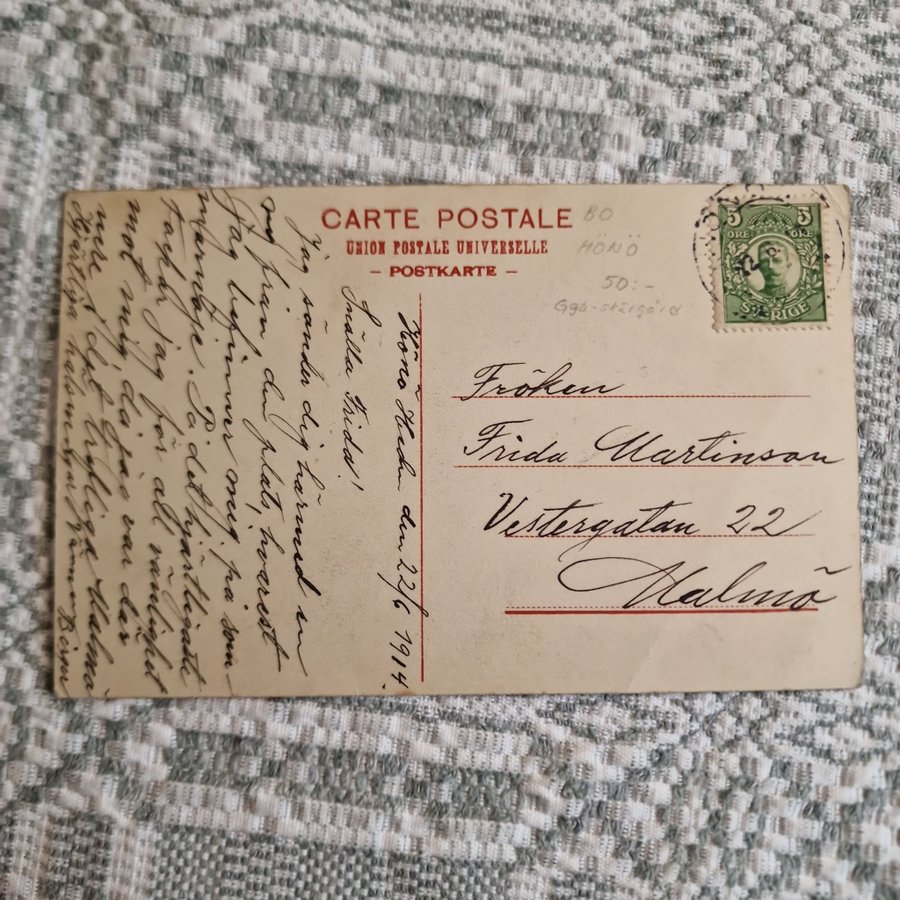 CARTE POSTALE
UNION POSTALE UNIVERSELLE
– POSTKARTE –
BO
HÖNÖ
50:-
Gbg-skärgård
5 5
ÖRE ÖRE
SVERIGE
Fröken
Frida Martinson
Vestergatan 22
Malmö
Hönö den 22/6 1914.
Snälla Frida!
Jag sänder dig härmed en
vy från den plats, hvarest
Jag befinner mig på som
marnöje. På det hjärtligaste
tackar Jag för all vänlighet
mot mig då jag var der
nere i det trefliga Malmö
Hjärtliga hälsningar Birger